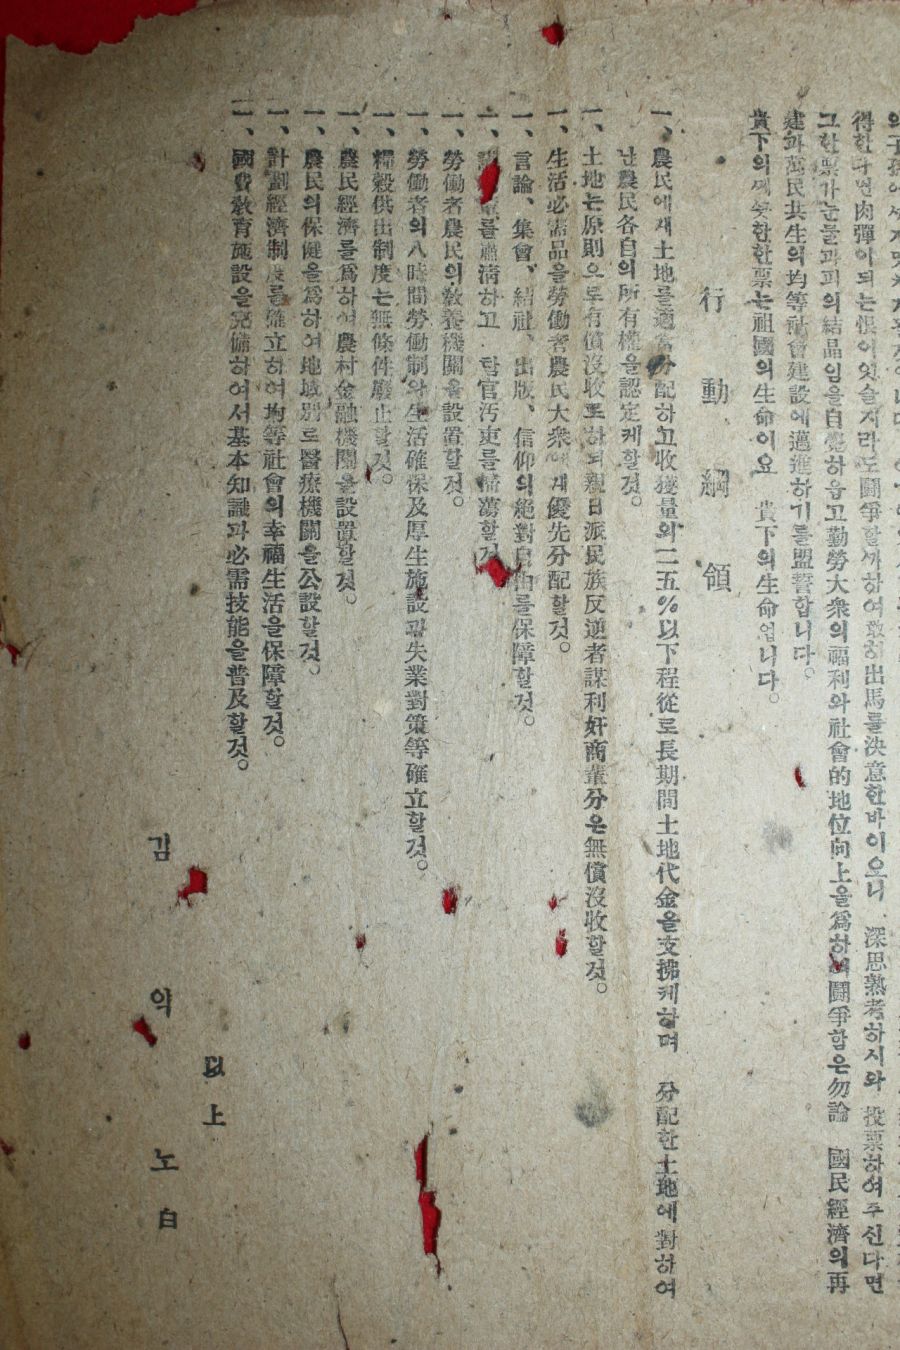 得한다면肉彈이되는恨이잇슬지라도鬪爭할께하여敢히出馬를決意한바이오니 深思熟考하시와 投票하여주신다면
그한票가눈물과피의結晶임을自覺하옵고勤勞大衆의福利와社會的地位向上을爲하여鬪爭함은勿論 國民經濟의再
建과萬民共生의均等社會建設에邁進하기를盟誓합니다。
貴下의께끗한한票는祖國의生命이요 貴下의生命업니다。
行動綱領
一、農民에게土地를適當分配하고收獲量의二五%以下程從로長期間土地代金을支拂케하며 分配한土地에對하여
난農民各自의所有權을認定케할것。
一、土地는原則으로有償沒收로하되親日派民族反逆者謀利奸商輩分은無償沒收할것。
一、生活必需品을勞働者農民大衆에게優先分配할것。
一、言論、集會、結社、出版、信仰의絶對自由를保障할것。
一、를肅淸하고 탐官汚吏를掃蕩할것
一、勞働者農民의敎養機關을設置할것。
一、勞働者의八時間勞働制와生活確保及厚生施設과失業對策等確立할것。
一、糧穀供出制度는無條件廢止할것。
一、農民經濟를爲하여農村金融機關을設置할것。
一、農民의保健을爲하여地域別로醫療機關을公設할것。
一、計劃經濟制度를確立하여均等社會의幸福生活을保障할것。
一、國費敎育施設을完備하여서基本知識과必需技能을普及할것。
以上
김약노白